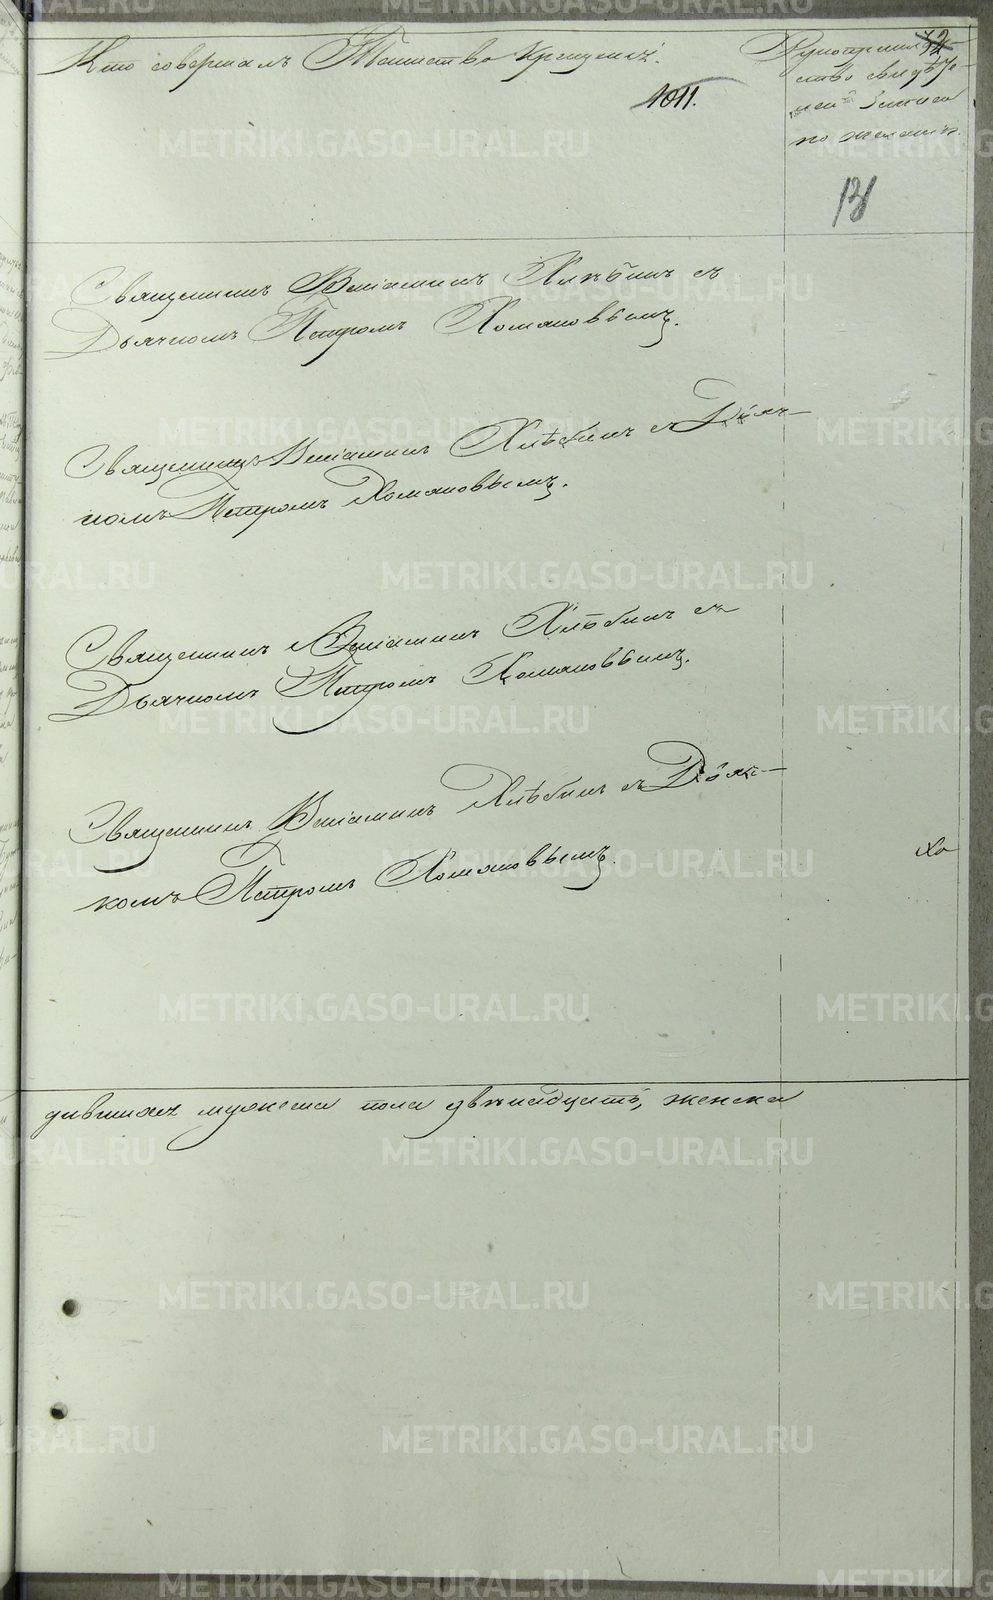 Кто совершалъ Таинство крещенiя.
1011.
Рукоприклад-
ство свидѣте-
лей записи
по желанiю.
72
131
Священникъ Венiаминъ Хлѣбинъ съ
Дьячкомъ Петромъ Хомяковымъ.
Священникъ Венiаминъ Хлѣбинъ съ Дьяч-
комъ Петромъ Хомяковымъ.
Священникъ Венiаминъ Хлѣбинъ съ
Дьячкомъ Петромъ Хомяковымъ.
Священникъ Венiаминъ Хлѣбинъ съ Дьяч-
комъ Петромъ Хомяковымъ.
Хо
дившихъ мужеска пола двѣнадцать, женска
METRIKI.GASO-URAL.RU